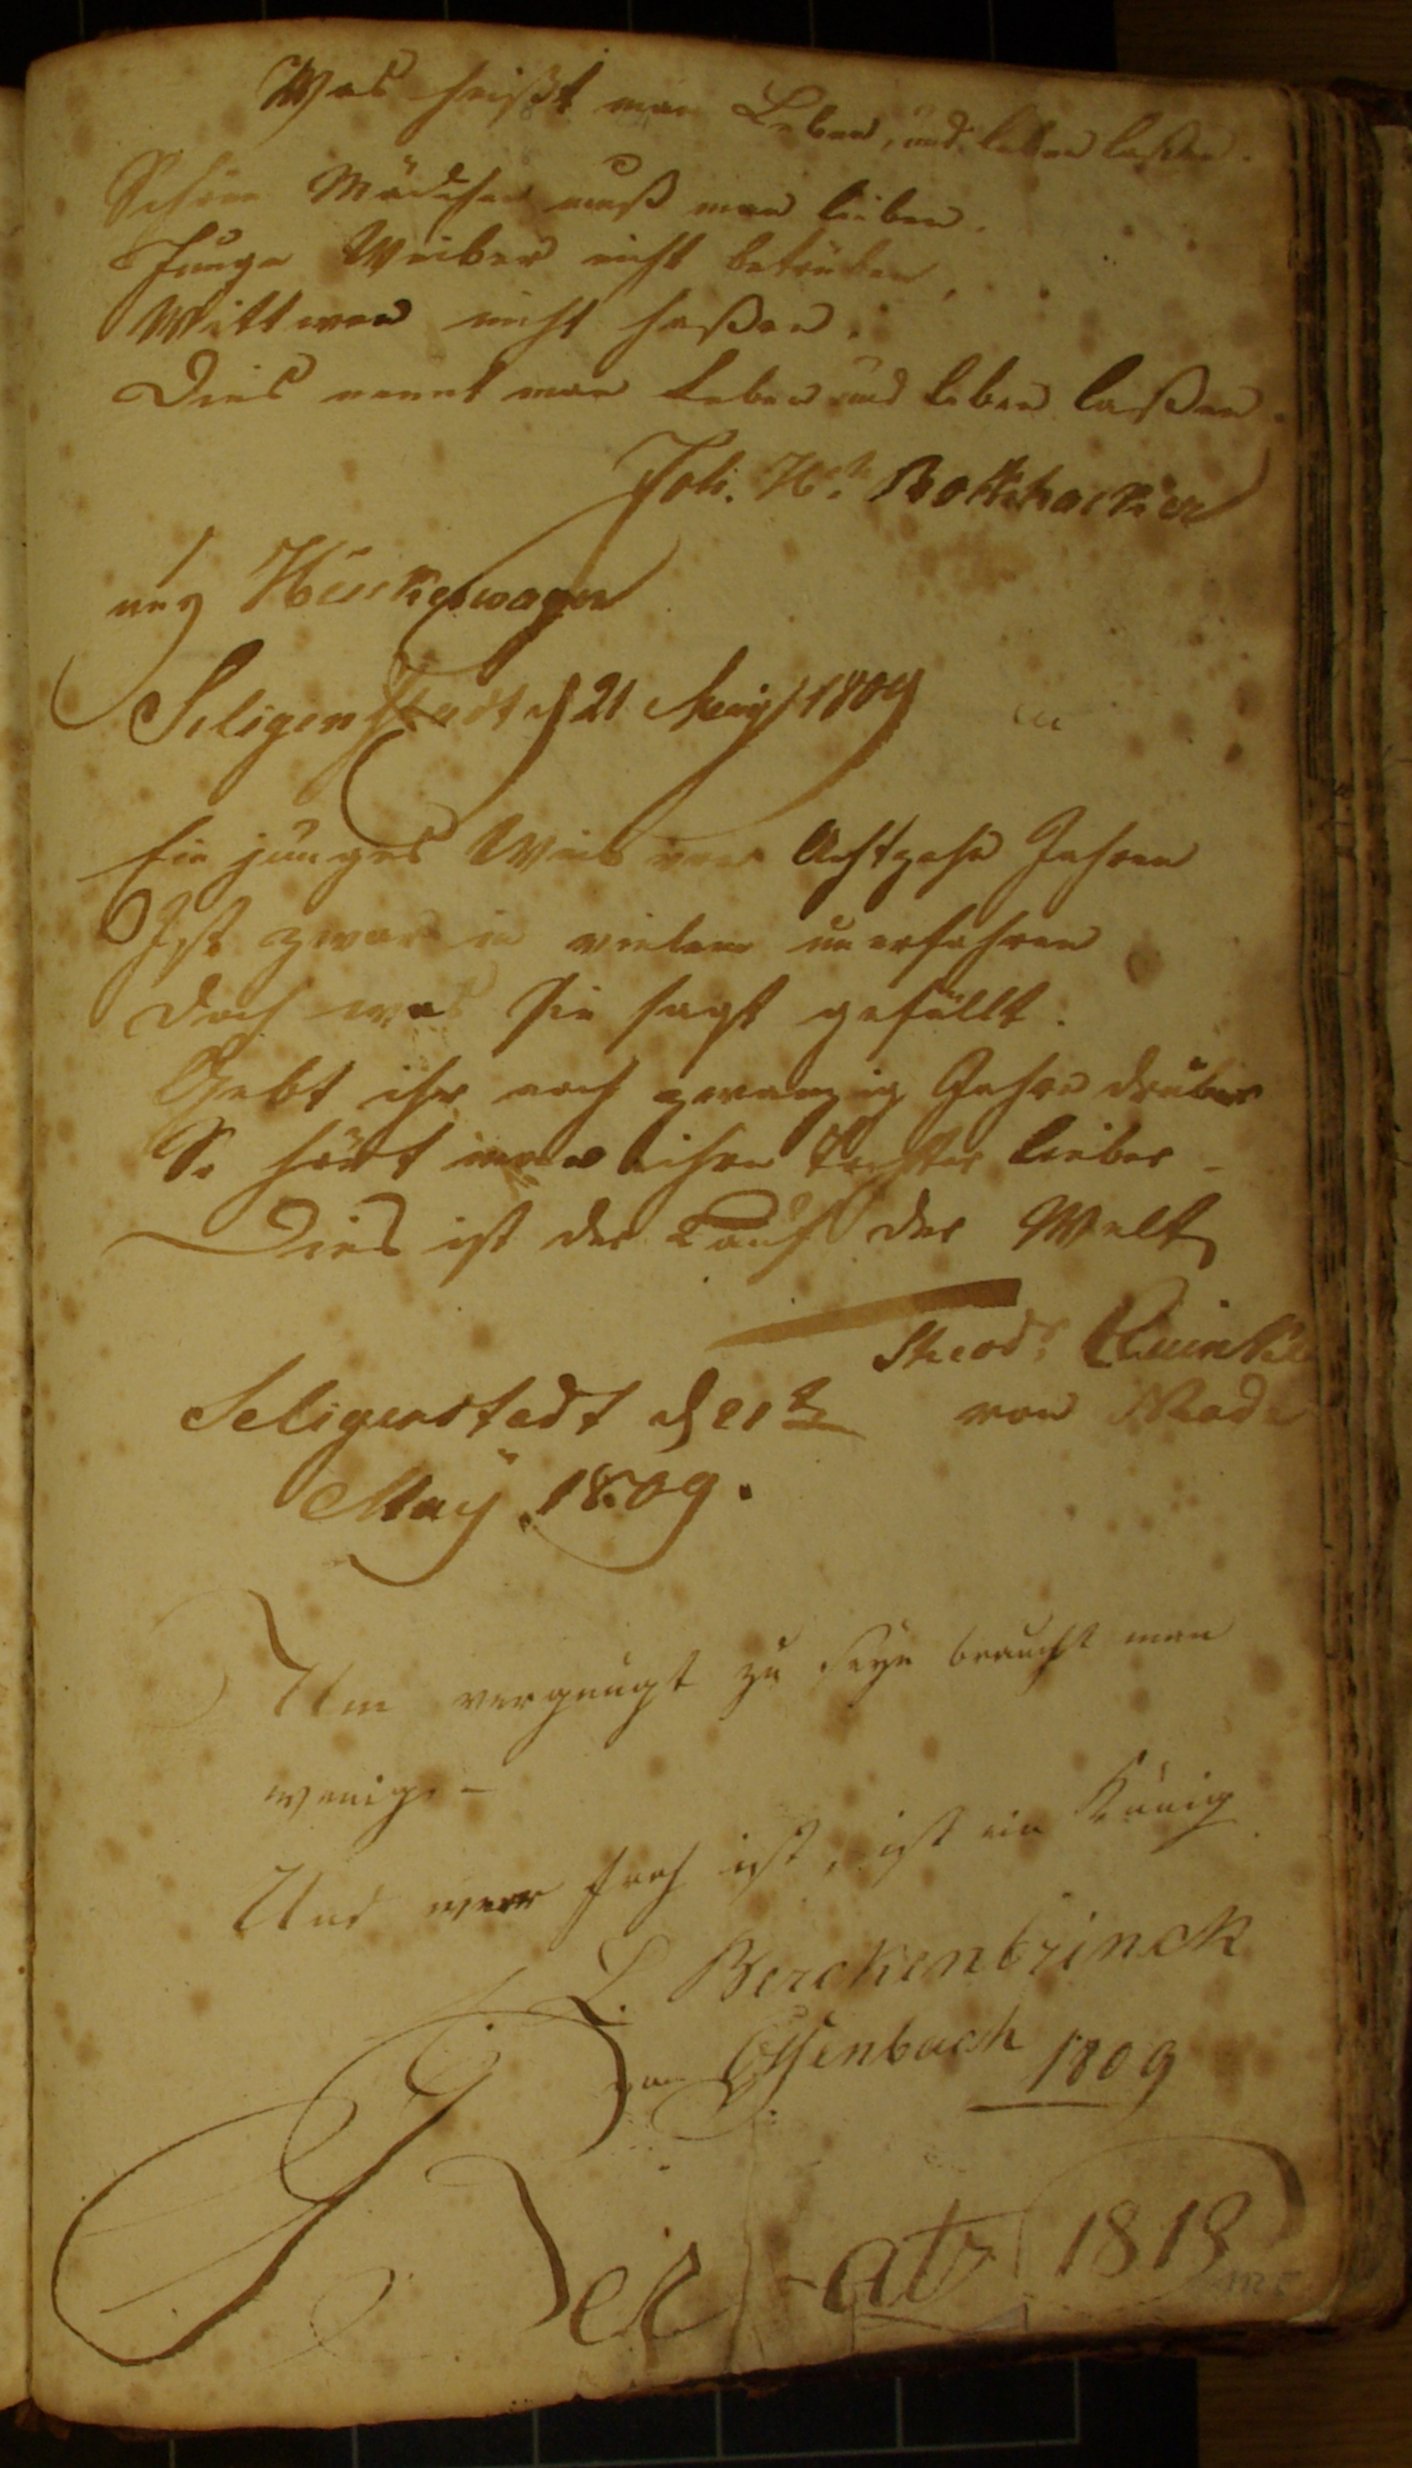 Was heißt man Leben, und leben laßen.
Schöne Mädchen muß man lieben.
Junge Weiber nicht betrüben,
Wittwen nicht haßen.
Dies nennt man Leben und leben laßen.
Joh. Hch Bockhacker
Hückeswagen
Seligenstadt d 21 May 1809
Ein junges Weib von Achtzehn Jahren
Ist zwar in vielem unerfahren
doch was sie sagt gefällt.
Gebt ihr noch zwanzig Jahre drüber
So hört man ihre Tochter lieber –
Dies ist der Lauf der Welt
Theod:
Seligenstadt d 21t von
May 1809.
Um vergnügt zu seyn braucht man
wenig –
Und wer froh ist, ist ein König
L. Berckenbrinck
von 1809
1818